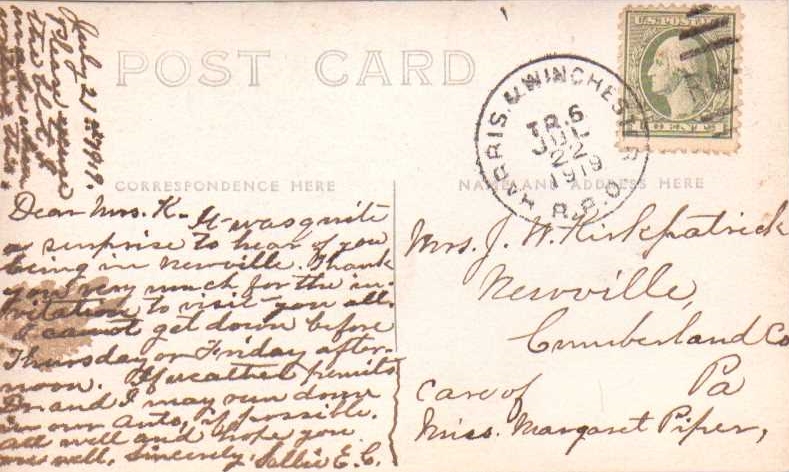 POST CARD
CORRESPONDENCE HERE
NAME AND ADDRESS HERE
U.S. POSTAGE
CENTS
HARRIS. & WINCHESTER
TR.6
JUL
22
1919
R.P.O.
July 21 1919.
Please excuse
this blot
Dear Mrs. K- It was quite
a surprise to hear of you
being in Newville. Thank
you very much for the in-
vitation to visit you all.
I cannot get down before
Thursday or Friday after-
noon. If weather permits
Dr. and I may run down
in our auto, if possible.
All well and hope you
are well, Sincerely, Sallie E. C.
Mrs. J. W. Kirkpatrick
Newville,
Cumberland Co
Pa
Care of
Miss. Margaret Piper,